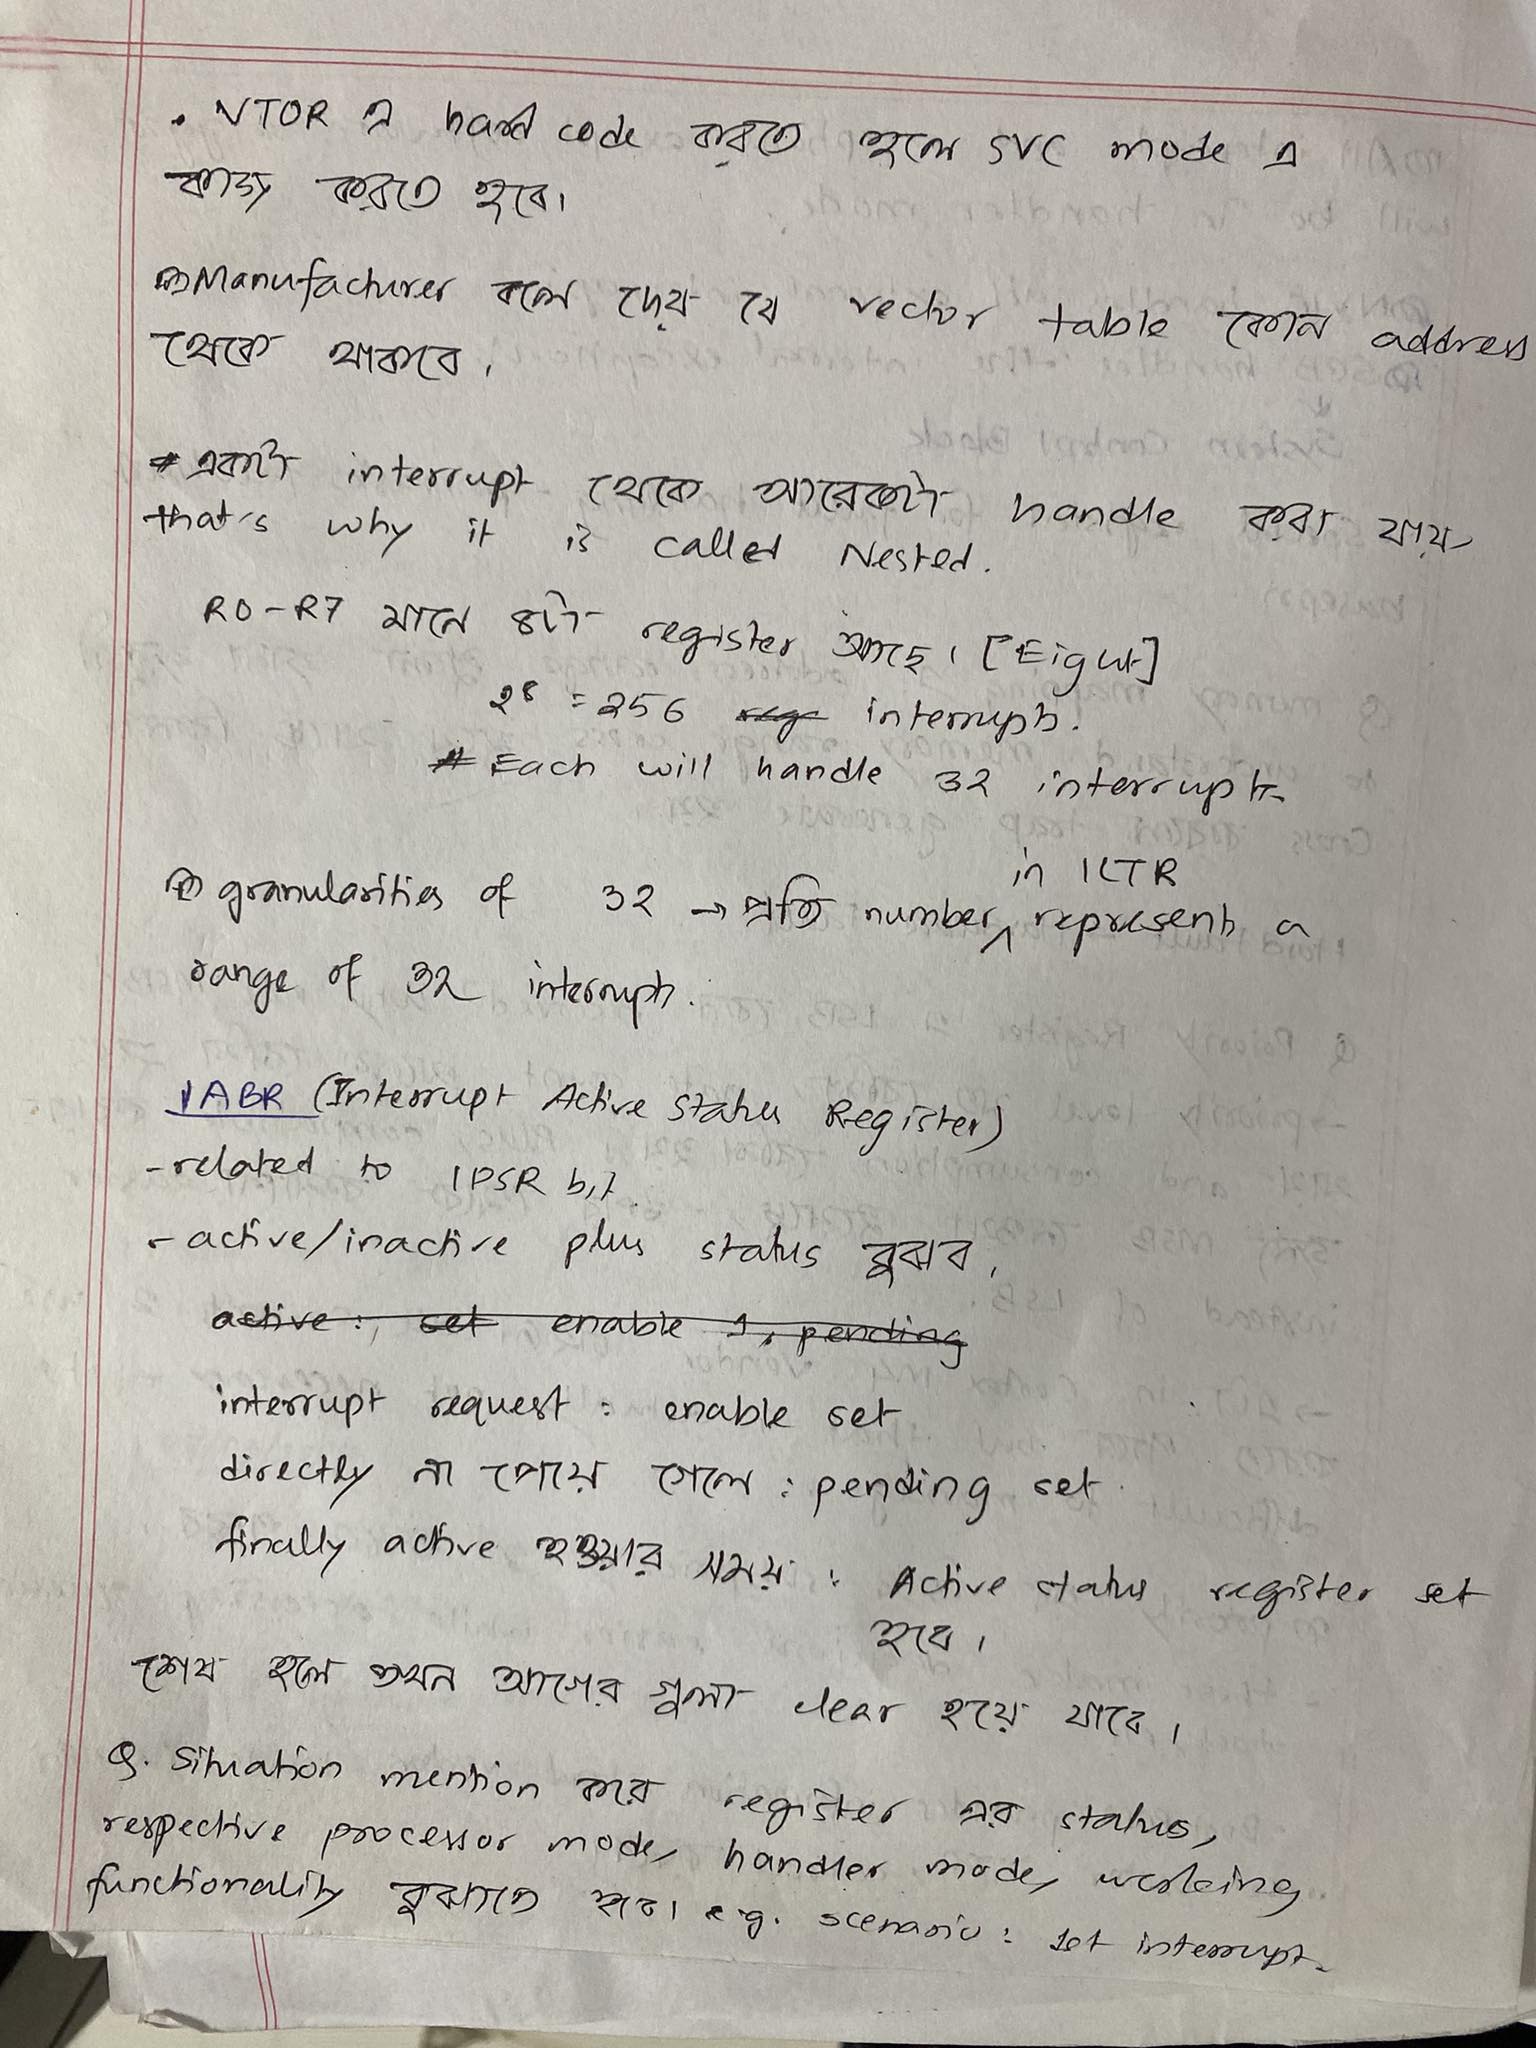 . VTOR এ hard code করতে হলে SVC mode এ
কাজ করতে হবে।
Manufacturer বলে দেয় যে vector table কোন address
থেকে থাকবে।
# একটা interrupt থেকে আরেকটা handle করা যায়
that's why it is called Nested.
R0-R7 মানে ৪টা register আছে। [Eight]
2⁸ = 256 interrupts.
# Each will handle 32 interrupts.
in ICTR
granularities of 32 → প্রতি number ^ represents a
range of 32 interrupts.
IABR (Interrupt Active Status Register)
- related to IPSR bit
- active/inactive plus status বুঝাব,
active: set enable 1, pending
interrupt request : enable set
directly না পেয়ে গেলে : pending set.
finally active হওয়ার সময় : Active status register set
হবে।
শেষ হলে তখন আগের গুলা clear হয়ে যাবে।
Q. Situation mention করে register এর status,
respective processor mode, handler mode, working
functionality বুঝাতে হবে। e.g. scenario : 1st interrupt.